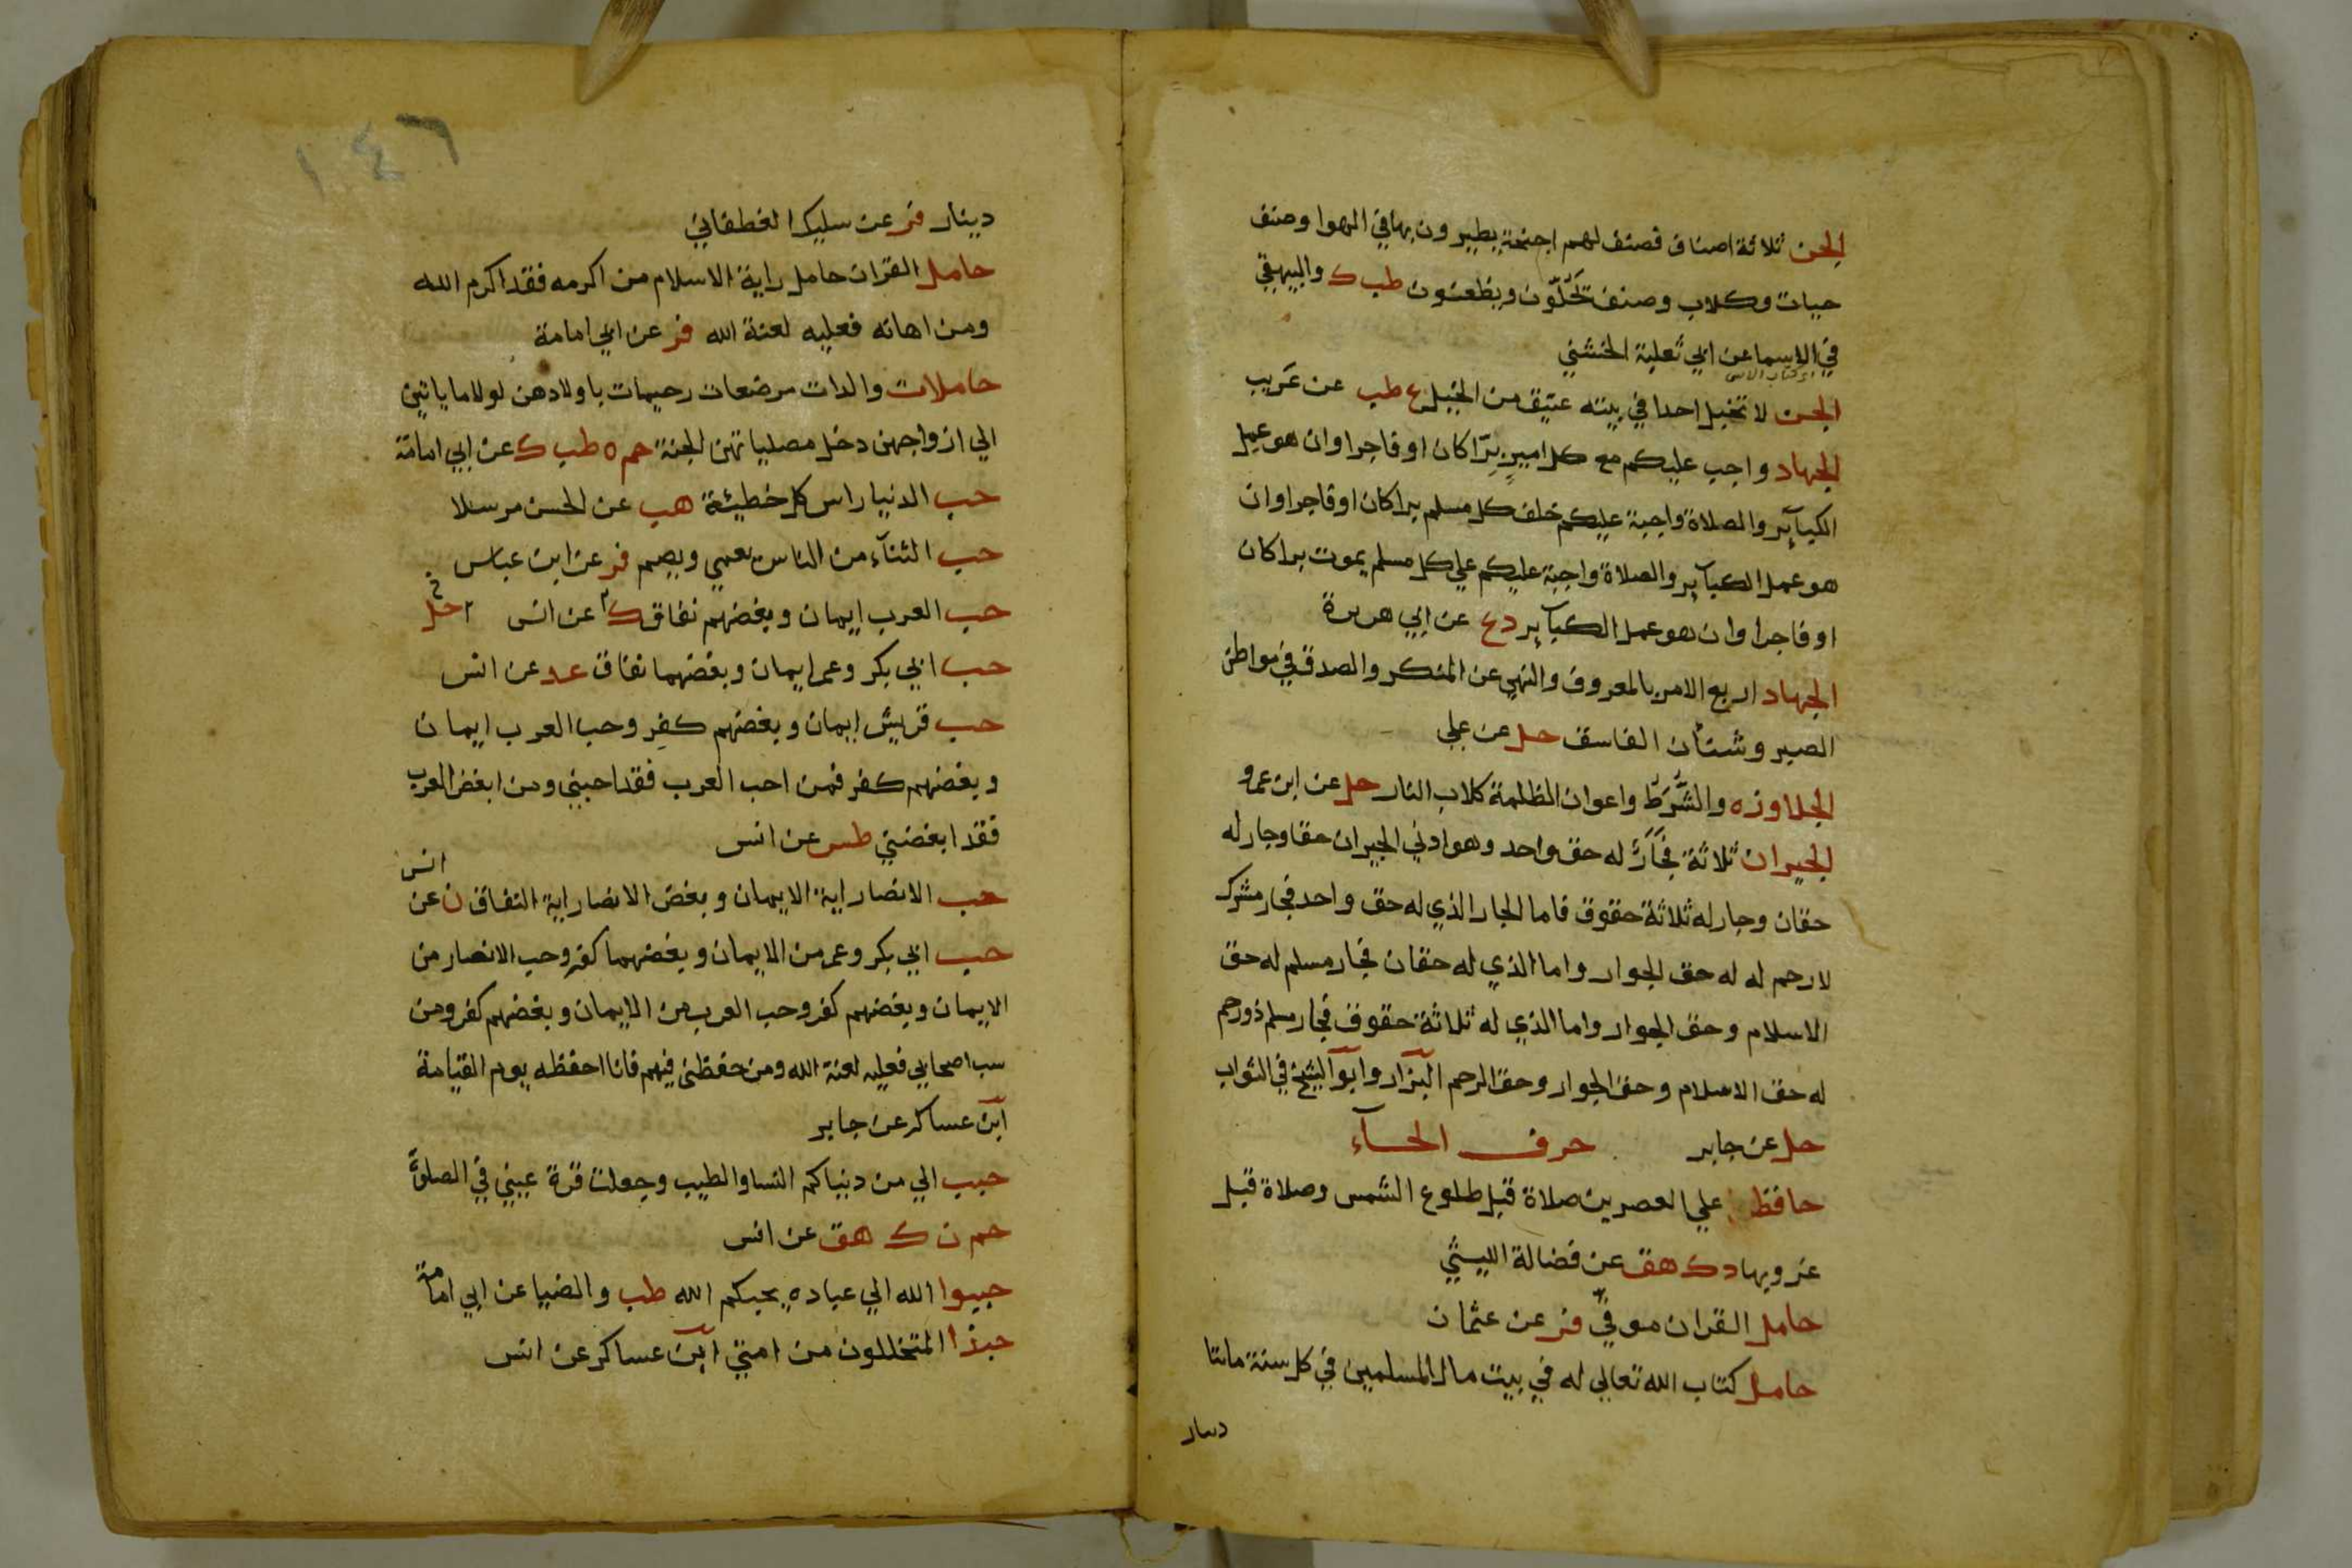 الجن ثلاثة اصناف فصنف لهم اجنحة يطيرون بها في الهوا وصنف
حيات وكلاب وصنف يحلّون ويظعنون طب ك والبيهقي
في الاسما عن ابي ثعلبة الخشني
الجن لا تخبل احدا في بيته عتيق من الخيل ع طب عن عَريب
الجهاد واجب عليكم مع كل امير برّا كان او فاجرا وان هو عمل
الكبآير والصلاة واجبة عليكم خلف كل مسلم برا كان او فاجرا وان
هو عمل الكبآير والصلاة واجبة عليكم علي كل مسلم يموت برا كان
او فاجرا وان هو عمل الكبآير د ع عن ابي هريرة
الجهاد اربع الامر بالمعروف والنهي عن المنكر والصدق في مواطن
الصبر وشنأن الفاسق حل عن علي
الجلاوزه والشُّرَطُ واعوان الظلمة كلاب النار حل عن ابن عمرو
الجيران ثلاثة فجَارٌ له حق واحد وهو ادني الجيران حقا وجار له
حقان وجار له ثلاثة حقوق فاما الجار الذي له حق واحد فجار مشرك
لا رحم له له حق الجوار واما الذي له حقان فجار مسلم له حق
الاسلام وحق الجوار واما الذي له ثلاثة حقوق فجار مسلم ذو رحم
له حق الاسلام وحق الجوار وحق الرحم البزار وابو الشيخ في الثواب
حل عن جابر حرف الحآء
حافظ علي العصرين صلاة قبل طلوع الشمس وصلاة قبل
غروبها د ك هق عن فضالة الليثي
حامل القران موقي فر عن عثمان
حامل كتاب الله تعالي له في بيت مال المسلمين في كل سنة مائتا
دينار
١٤٦
دينار فر عن سليك الغطفاني
حامل القران حامل راية الاسلام من اكرمه فقد اكرم الله
ومن اهانه فعليه لعنة الله فر عن ابي امامة
حاملات والدات مرضعات رحيمات باولادهن لولا ما ياتين
الي ازواجهن دخل مصلياتهن الجنة حم ه طب ك عن ابي امامة
حب الدنيا راس كل خطيئة هب عن الحسن مرسلا
حب الثنآء من الناس يعمي ويصم فر عن ابن عباس
حب العرب ايمان وبغضهم نفاق ك عن انس حل
حب ابي بكر وعمر ايمان وبغضهما نفاق عد عن انس
حب قريش ايمان وبغضهم كفر وحب العرب ايمان
وبغضهم كفر فمن احب العرب فقد احبني ومن ابغض العرب
فقد ابغضني طس عن انس
حب الانصار اية الايمان وبغض الانصار اية النفاق ن عن انس
حب ابي بكر وعمر من الايمان وبغضهما كفر وحب الانصار من
الايمان وبغضهم كفر وحب العرب من الايمان وبغضهم كفر ومن
سب اصحابي فعليه لعنة الله ومن حفظني فيهم فانا احفظه يوم القيامة
ابن عساكر عن جابر
حبب الي من دنياكم النسا والطيب وجعلت قرة عيني في الصلوة
حم ن ك هق عن انس
حببوا الله الي عباده يحبكم الله طب والضيا عن ابي امامة
حبذا المتخللون من امتي ابن عساكر عن انس